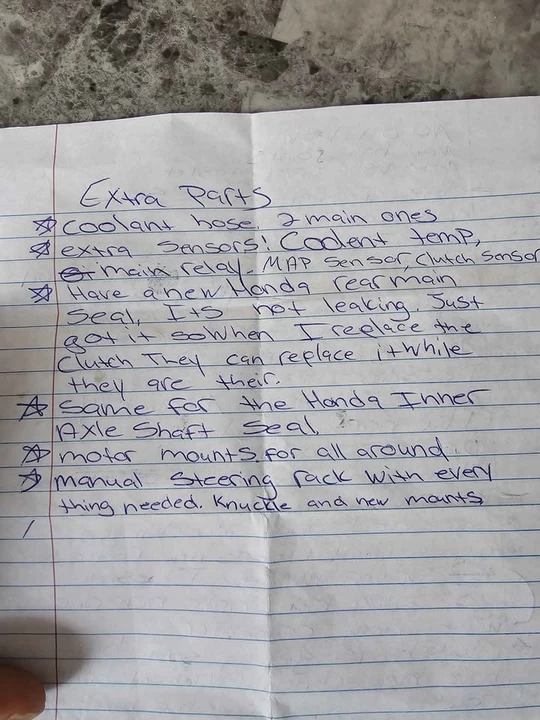 Extra Parts
☆ Coolant hose. 2 main ones
☆ extra Sensors! Coolent temp,
main relay. MAP Sensor, Clutch Sensor
☆ Have a new Honda rear main
Seal, Its not leaking. Just
got it so when I replace the
Clutch They can replace it while
they are their.
☆ Same for the Honda Inner
Axle Shaft Seal.
☆ motor mounts for all around.
☆ manual Steering rack with every
thing needed. Knuckle and new mounts